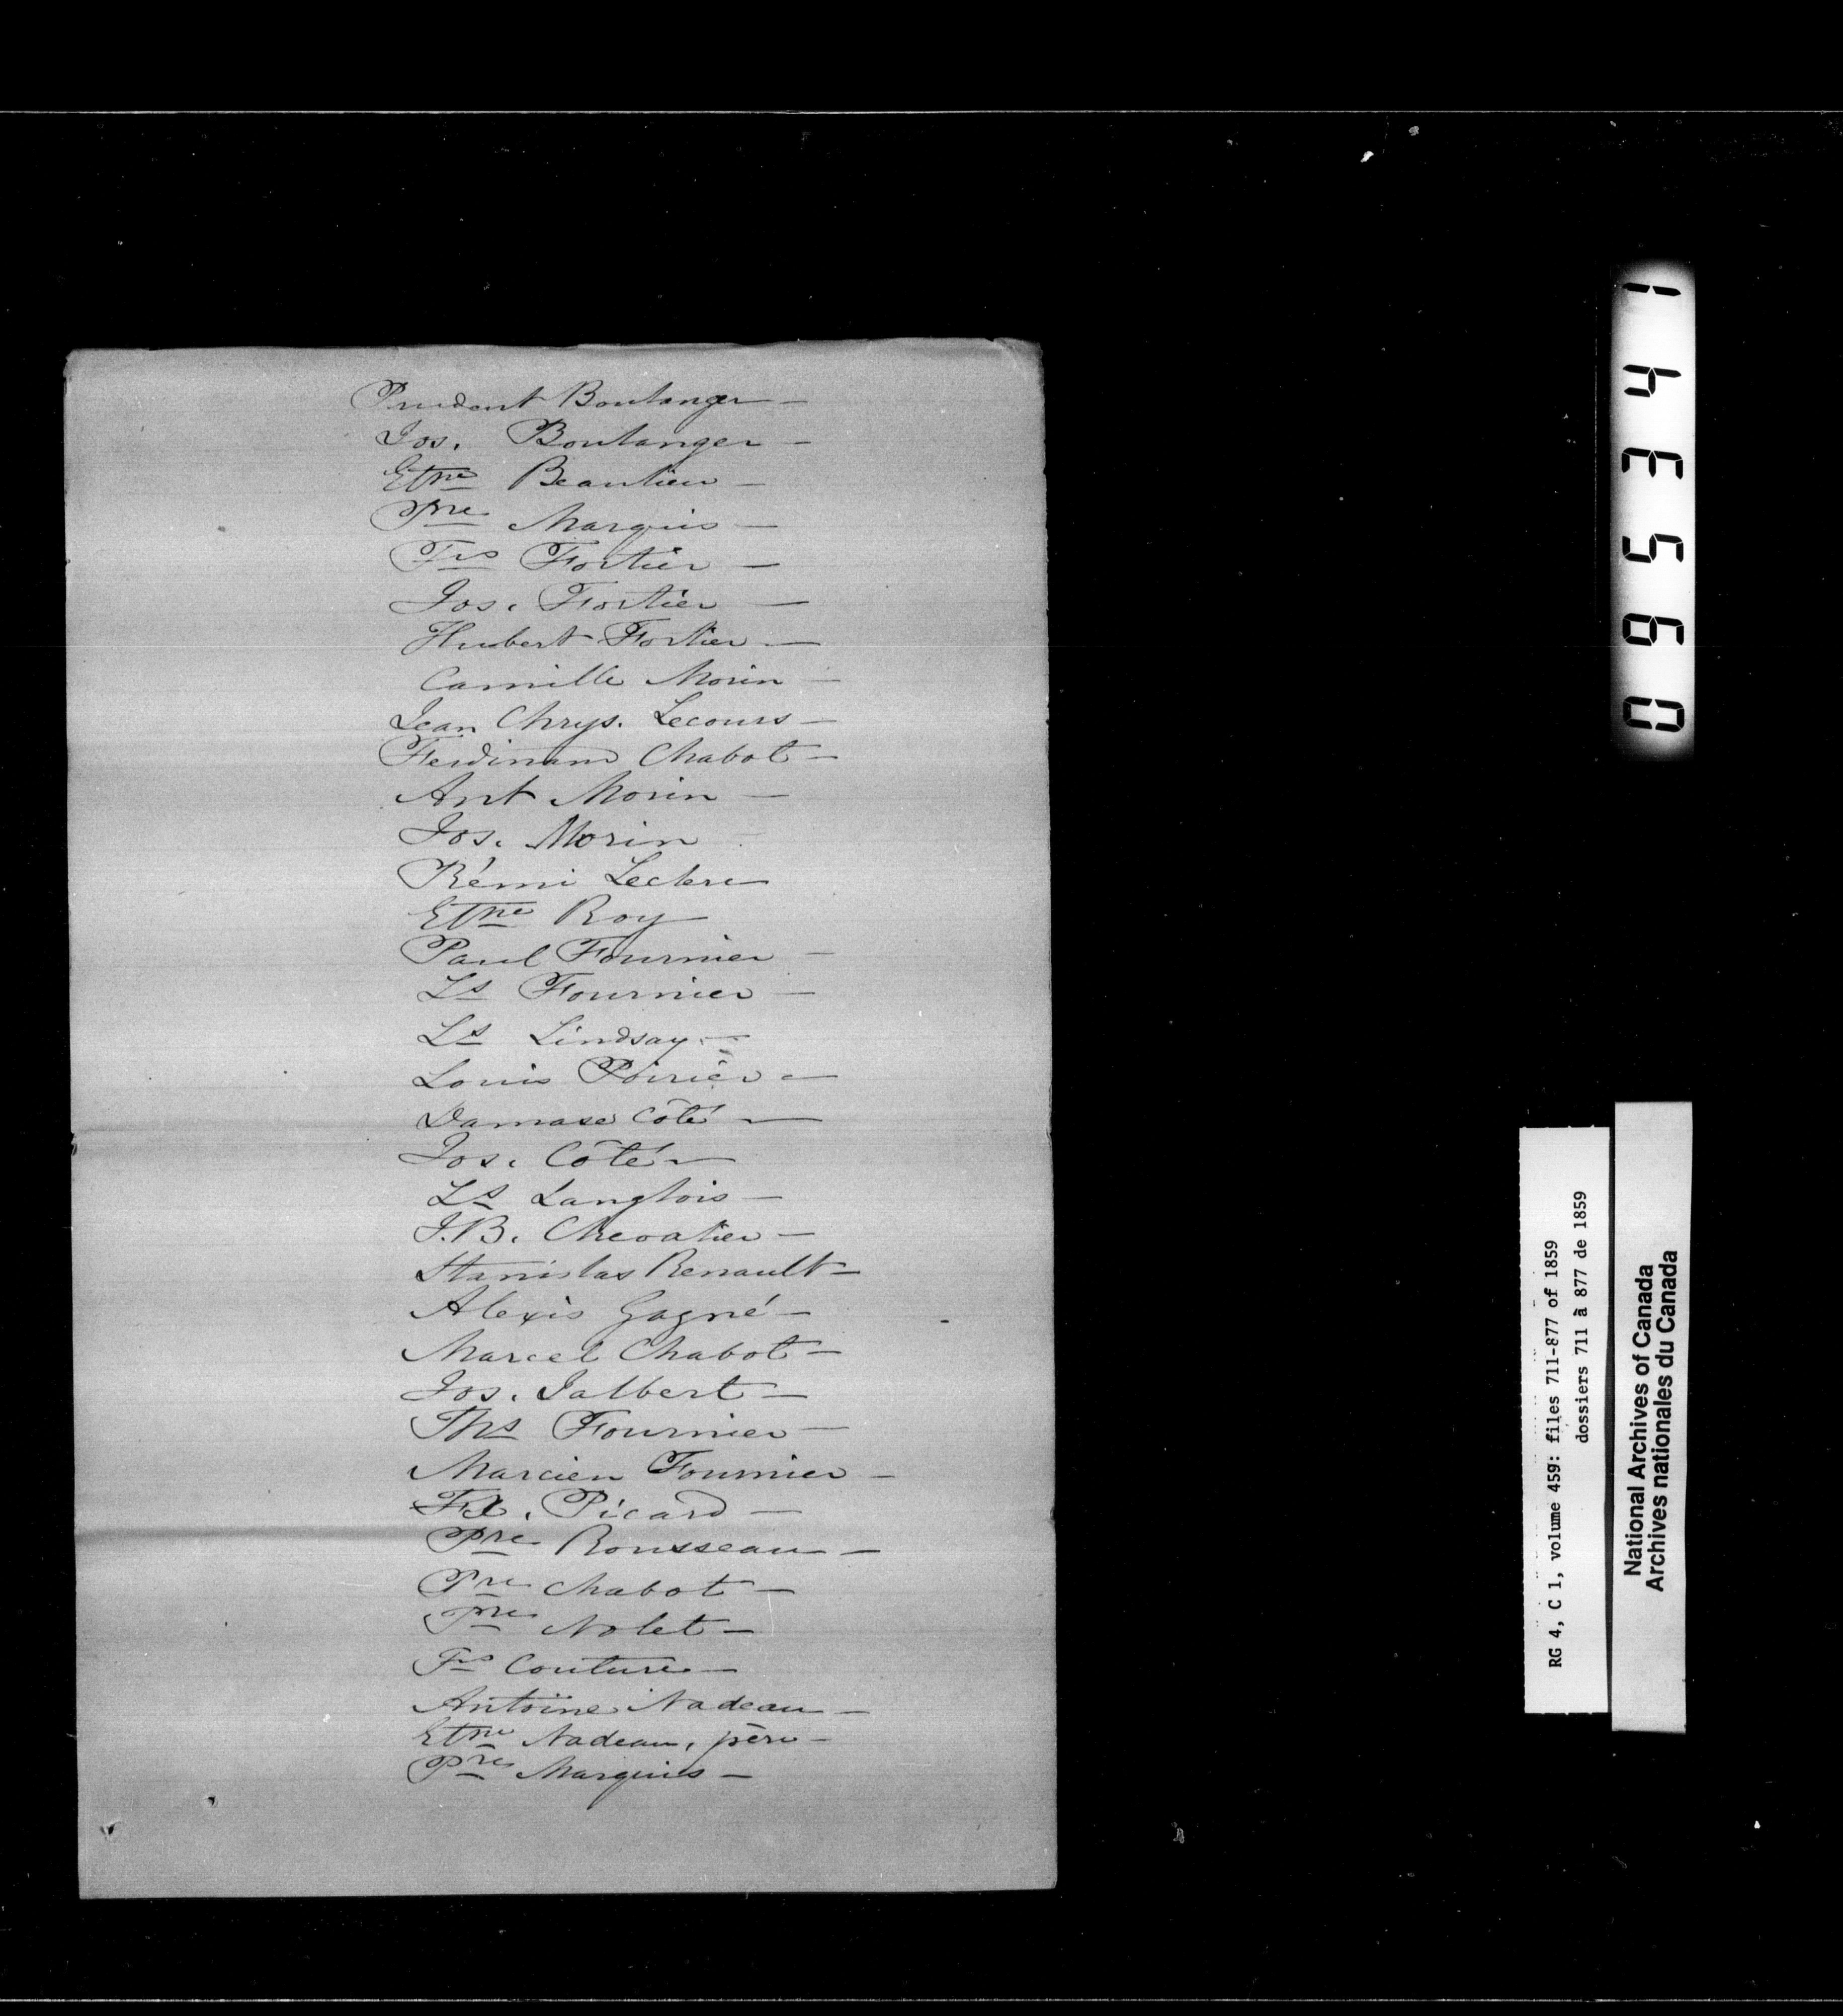 Prudent Boulanger —
Jos. Boulanger —
Etne Beaulieu —
Pre Marquis —
Frs Fortier —
Jos. Fortier —
Hubert Fortier —
Camille Morin —
Jean Chrys. Lecours —
Ferdinand Chabot —
Ant Morin —
Jos. Morin
Rémi Leclerc
Etne Roy
Paul Fournier —
Ls Fournier —
Ls Lindsay —
Louis Poirier —
Damase Côté —
Jos. Côté —
Ls Langlois —
J.B. Chevalier —
Stanislas Renault —
Alexis Gagné —
Marcel Chabot —
Jos. Jalbert —
Ths Fournier —
Marcien Fournier —
FX. Picard —
Pre Rousseau —
Pre Chabot —
Pre Nolet —
Frs Couture —
Antoine Nadeau —
Etne Nadeau, père —
Pre Marquis —
095341
RG 4, C 1, volume 459: files 711-877 of 1859
dossiers 711 à 877 de 1859
National Archives of Canada
Archives nationales du Canada